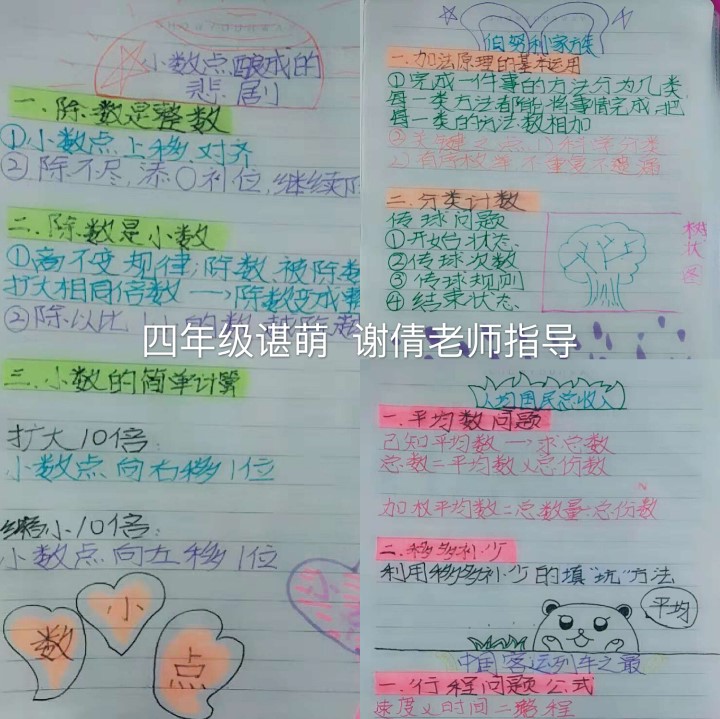 小数点酿成的
悲剧
一.除数是整数
①小数点上移,对齐
②除不尽,添〇补位,继续除
二.除数是小数
①商不变规律,除数、被除数
扩大相同倍数→除数变成整
②除以比1小的数
三.小数的简单计算
扩大10倍:
小数点向右移1位
缩小10倍:
小数点向左移1位
数
小
点
伯努利家族
一.加法原理的基本运用
①完成一件事的方法分为几类
每一类方法都能将事情完成,把
每一类的方法数相加
②关键之点:1)科学分类
2)有序枚举不重复不遗漏
二.分类计数
传球问题
①开始状态
②传球次数
③传球规则
④结束状态
树状图
四年级谌萌 谢倩老师指导
人均国民总收入
一.平均数问题
已知平均数→求总数
总数=平均数×总份数
加权平均数=总数量÷总份数
二.移多补少
利用移多补少的填"坑"方法
平均
中国客运列车之最
一.行程问题公式
速度×时间=路程